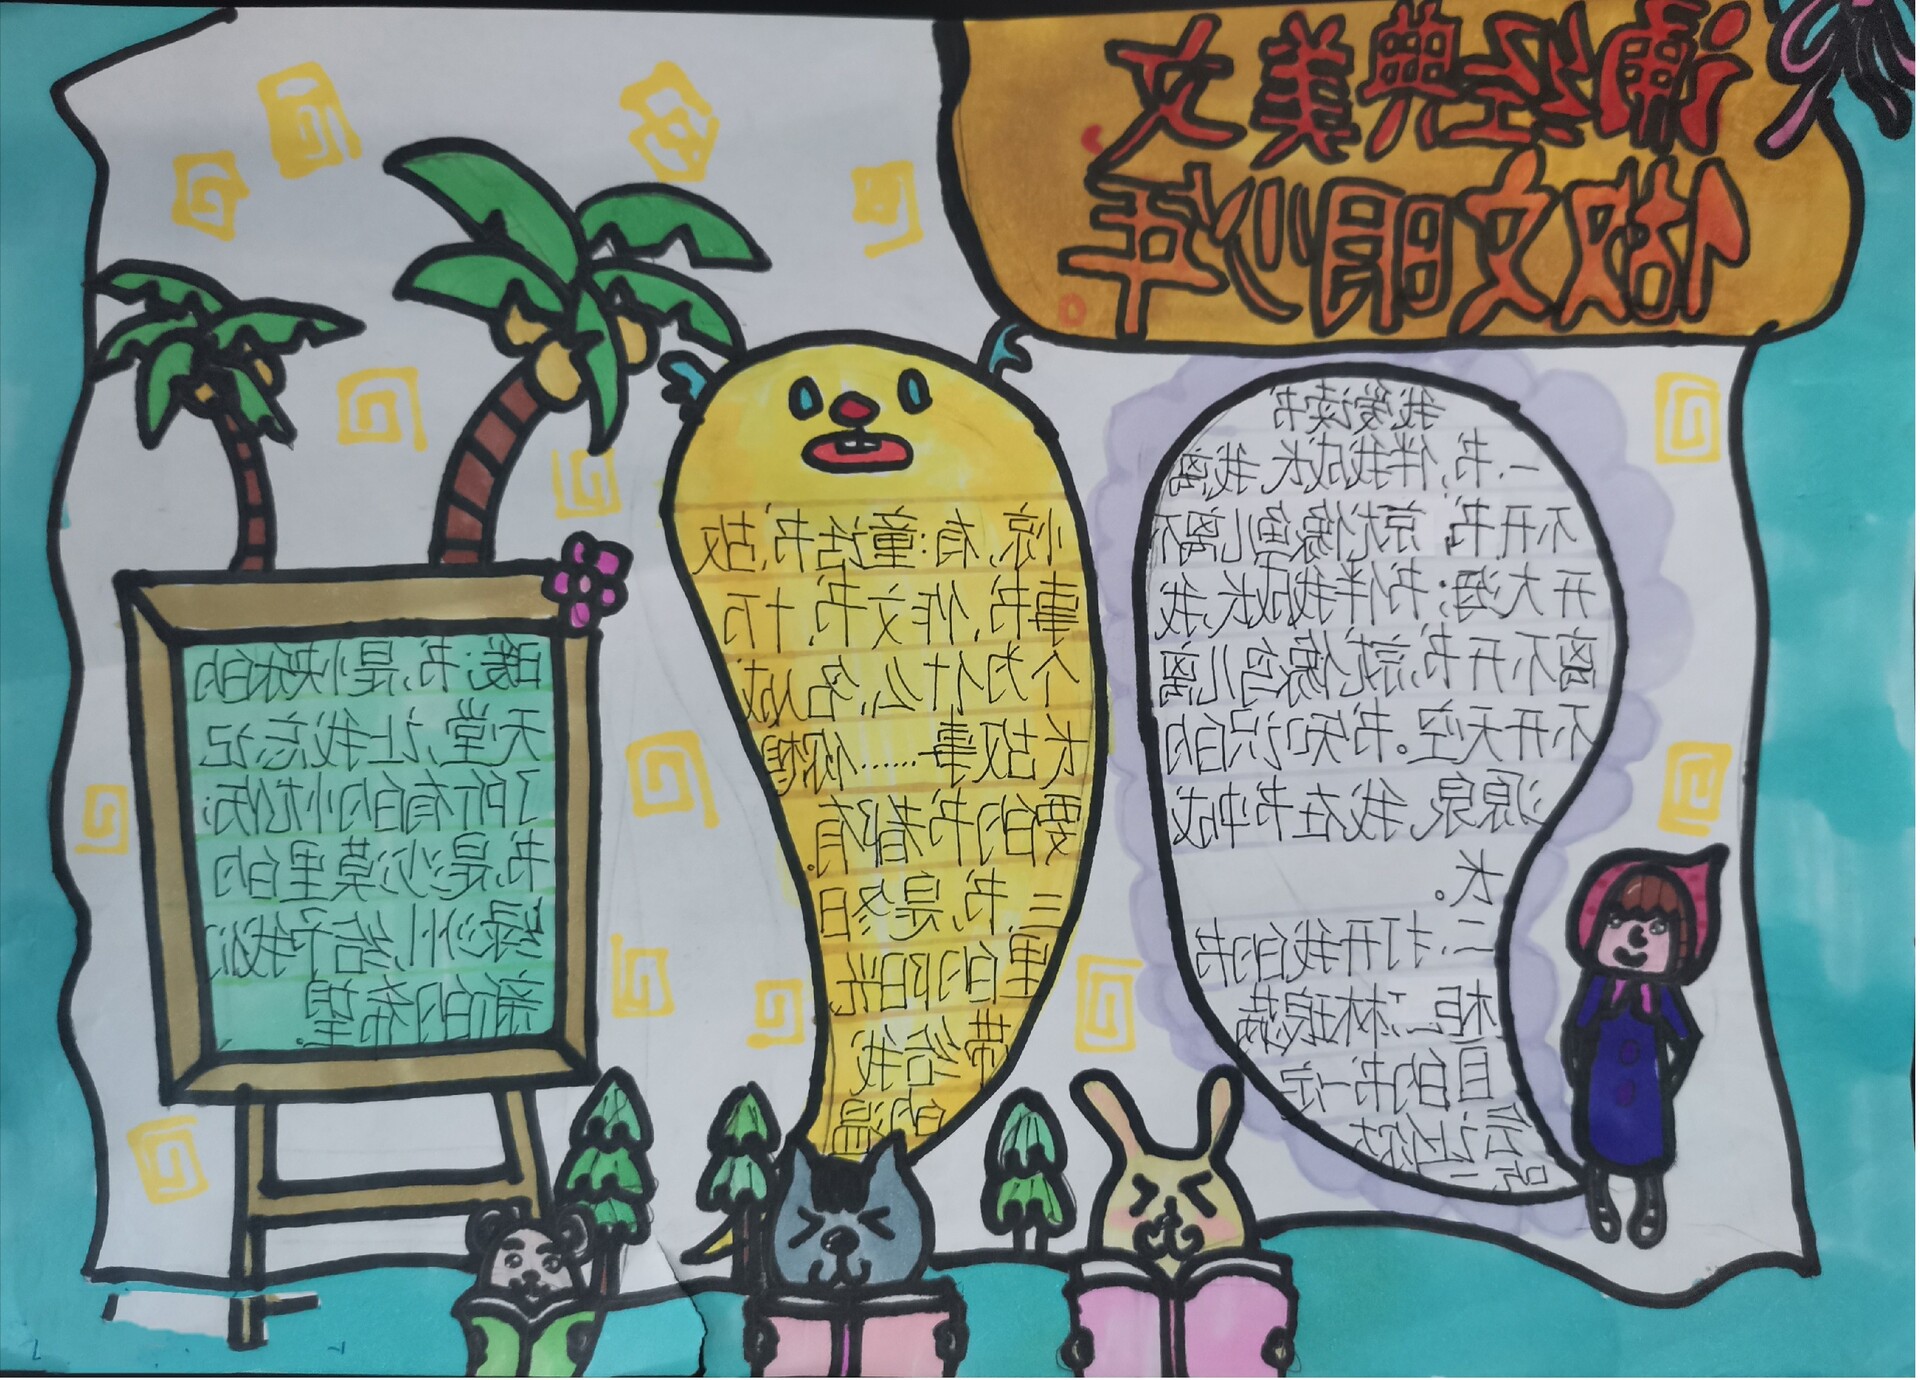 诵经典美文
做文明少年
我爱读书
一.书,伴我成长,我离
不开书,就像鱼儿离不
开大海;书伴我成长,我
离不开书,就像鸟儿离
不开天空。书,知识的
源泉,我在书中成
长。
二.打开我的书
柜,琳琅满
目的书一定
会让你大
吃一
惊,有:童话书,故
事书,作文书,十万
个为什么,名人成
长故事……你想
要的书都有。
三.书,是冬日
里的阳光,
带给我
的温
暖;书,是快乐的
天堂,让我忘记
了所有的忧伤;
书是沙漠里的
绿洲,给予我们
新的希望。